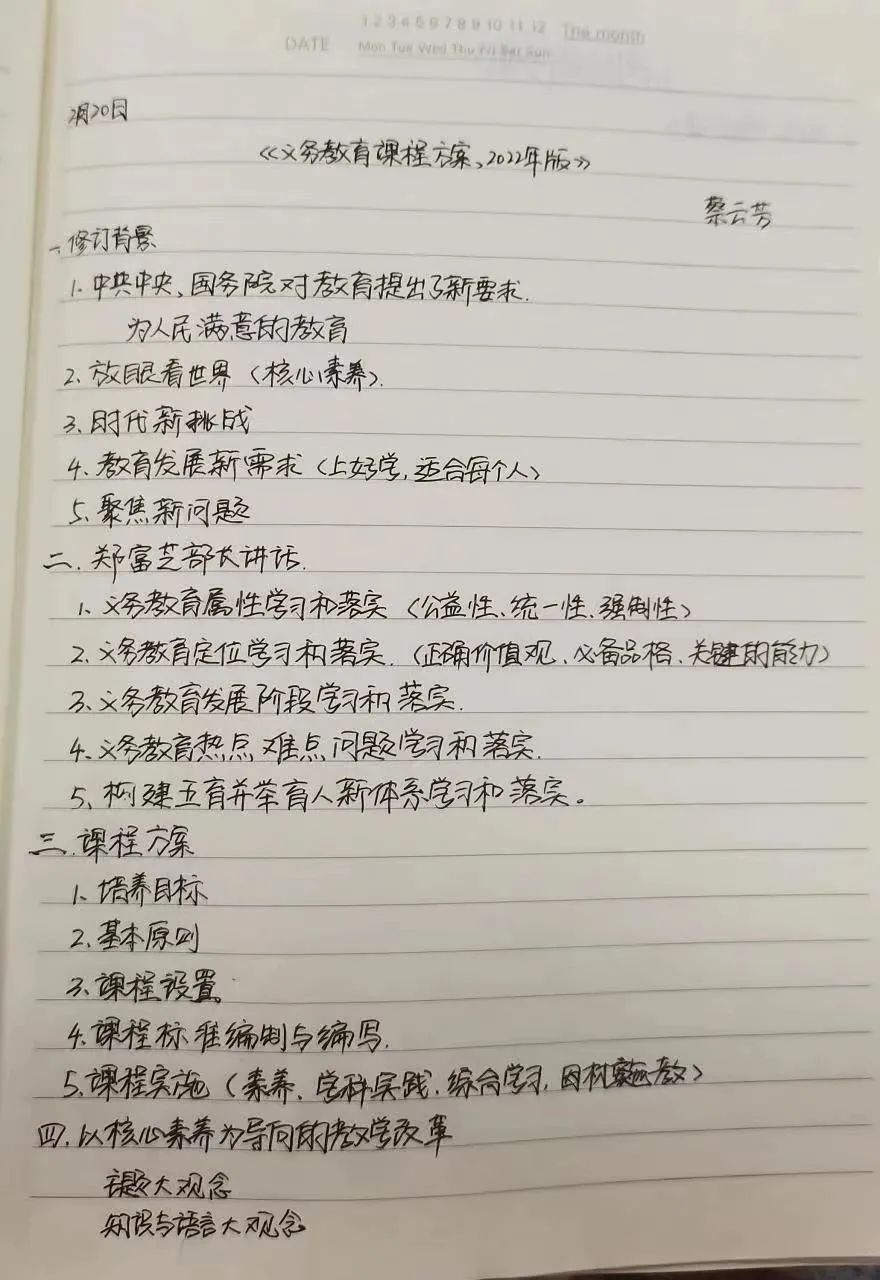 1 2 3 4 5 6 7 8 9 10 11 12 The month
DATE Mon Tue Wed Thu Fri Sat Sun
2月20日
《义务教育课程方案、2022年版》
蔡云芳
一、修订背景
1. 中共中央、国务院对教育提出了新要求.
为人民满意的教育
2. 放眼看世界（核心素养）.
3. 时代新挑战
4. 教育发展新需求（上好学,适合每个人）
5. 聚焦新问题
二. 郑富芝部长讲话.
1. 义务教育属性学习和落实（公益性、统一性、强制性）
2. 义务教育定位学习和落实.（正确价值观、必备品格、关键的能力）
3. 义务教育发展阶段学习和落实.
4. 义务教育热点难点问题学习和落实.
5、构建五育并举育人新体系学习和落实。
三.课程方案
1、培养目标
2、基本原则
3、课程设置
4.课程标准编制与编写.
5.课程实施（素养、学科实践.综合学习,因材施教）
四.以核心素养为导向的教学改革
主题大观念
知识与语言大观念